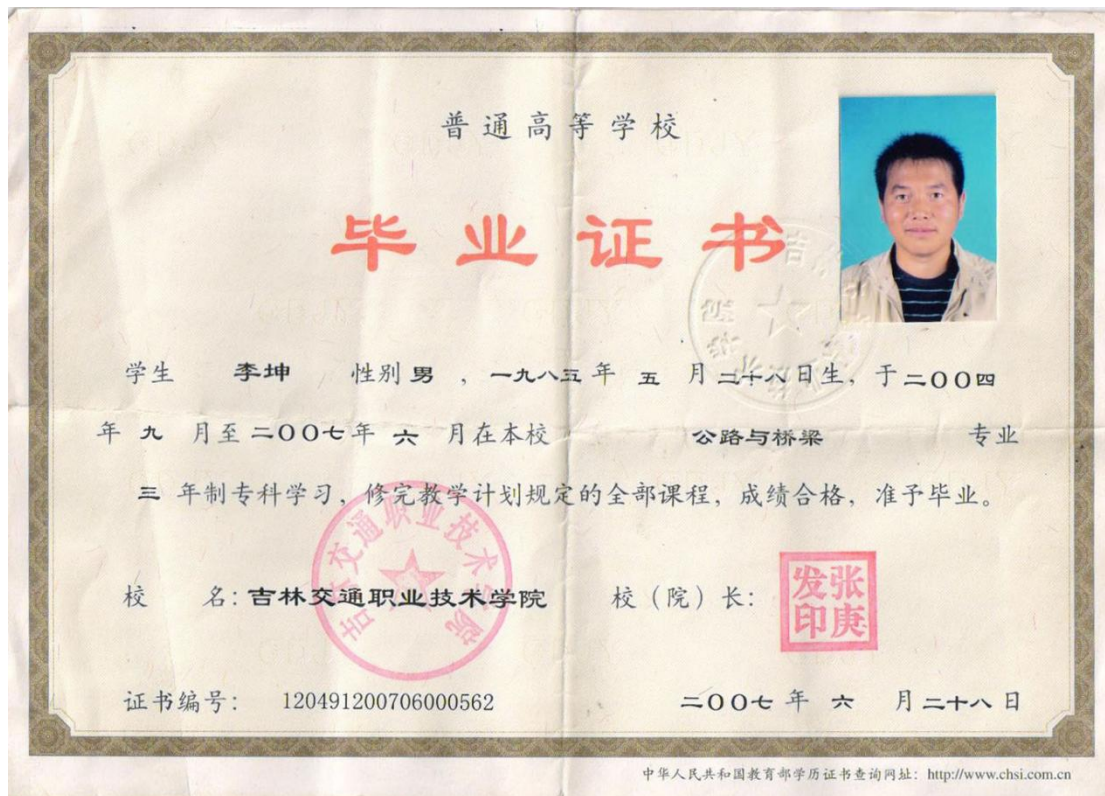 普通高等学校
毕业证书
学生 李坤 性别 男 ，一九八五年 五 月二十八日生，于二〇〇四
年 九 月至二〇〇七年 六 月在本校 公路与桥梁 专业
三 年制专科学习，修完教学计划规定的全部课程，成绩合格，准予毕业。
校 名：吉林交通职业技术学院 校（院）长：
吉林交通职业技术学院
张庚
发印
证书编号： 120491200706000562 二〇〇七年 六 月二十八日
中华人民共和国教育部学历证书查询网址：http://www.chsi.com.cn